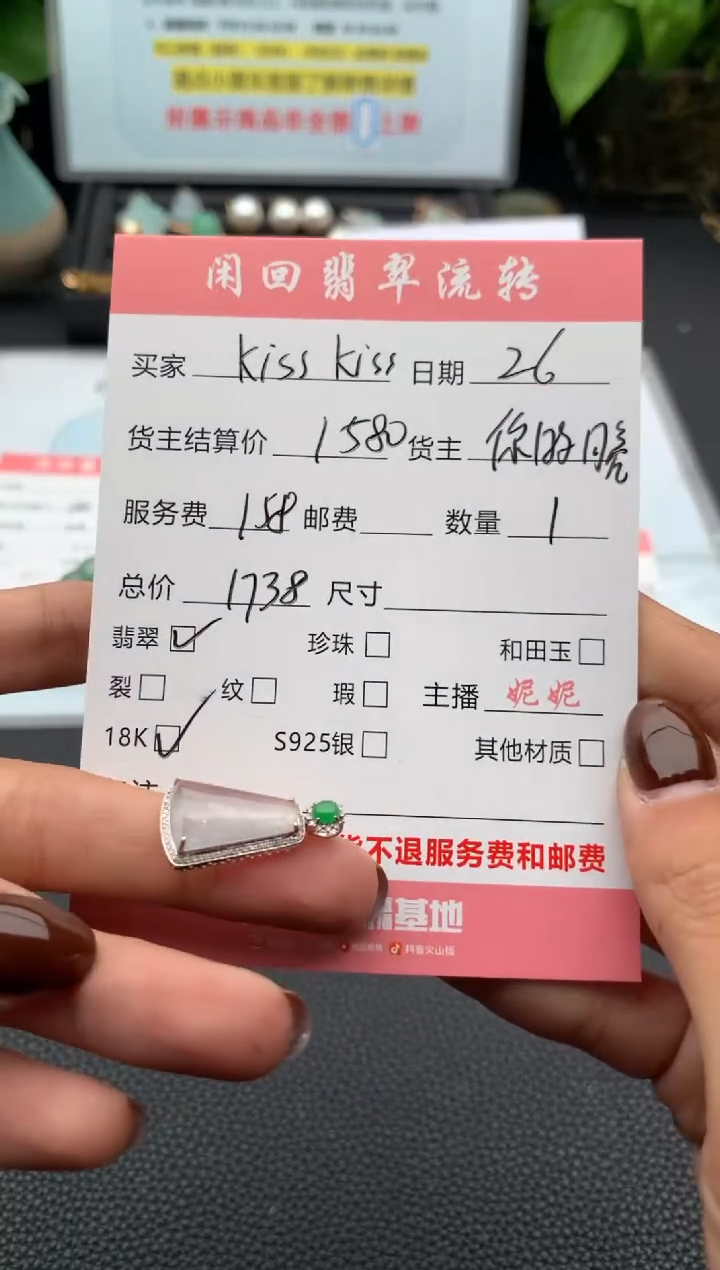 闲回翡翠流转
买家 kiss kiss 日期 26
货主结算价 1580 货主
服务费 158 邮费 数量 1
总价 1738 尺寸
翡翠 珍珠 和田玉
裂 纹 瑕 主播 妮妮
18K S925银 其他材质
不退服务费和邮费
基地
抖音火山版